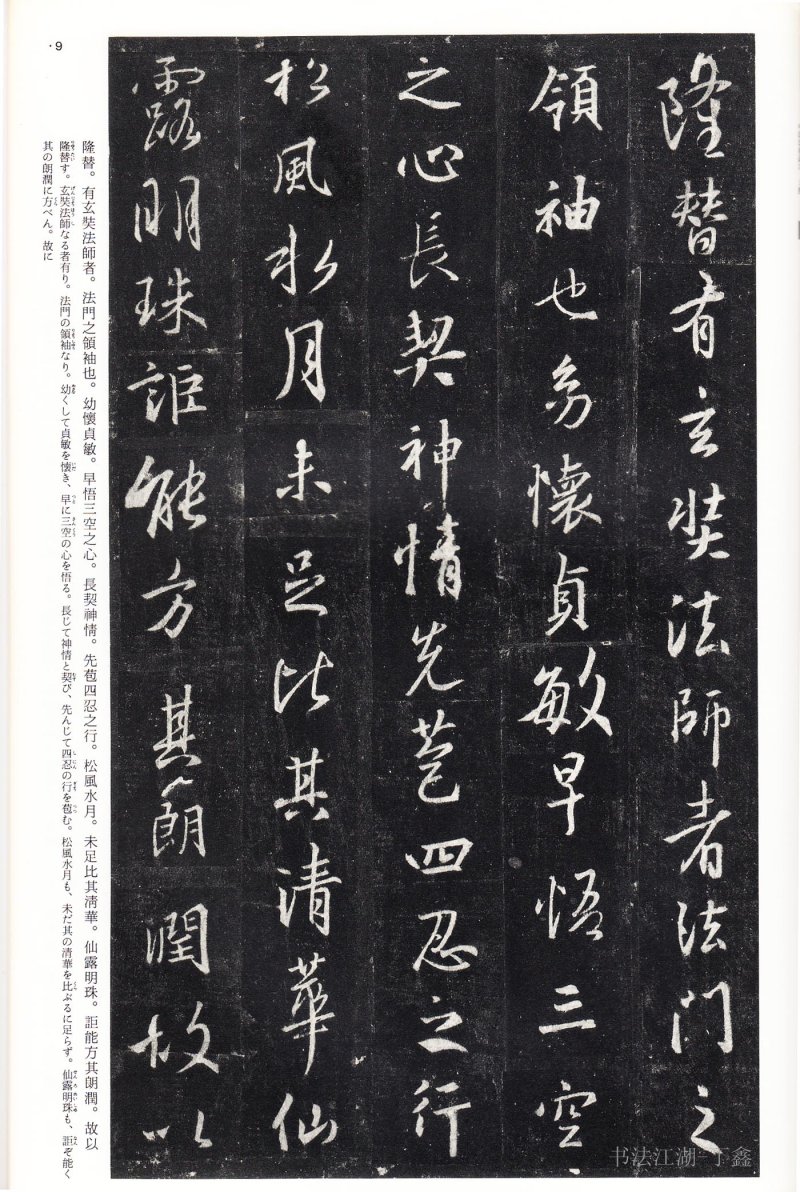 隆替有玄奘法師者法門之
領袖也幼懷貞敏早悟三空
之心長契神情先苞四忍之行
松風水月未足比其清華仙
露明珠詎能方其朗潤故以
·9
隆替。有玄奘法師者。法門之領袖也。幼懷貞敏。早悟三空之心。長契神情。先苞四忍之行。松風水月。未足比其淸華。仙露明珠。詎能方其朗潤。故以
隆替す。玄奘法師なる者有り。法門の領袖なり。幼くして貞敏を懷き、早に三空の心を悟る。長じて神情と契び、先んじて四忍の行を苞む。松風水月も、未だ其の清華を比ぶるに足らず。仙露明珠も、詎ぞ能く
其の朗潤に方べん。故に
书法江湖-丁鑫